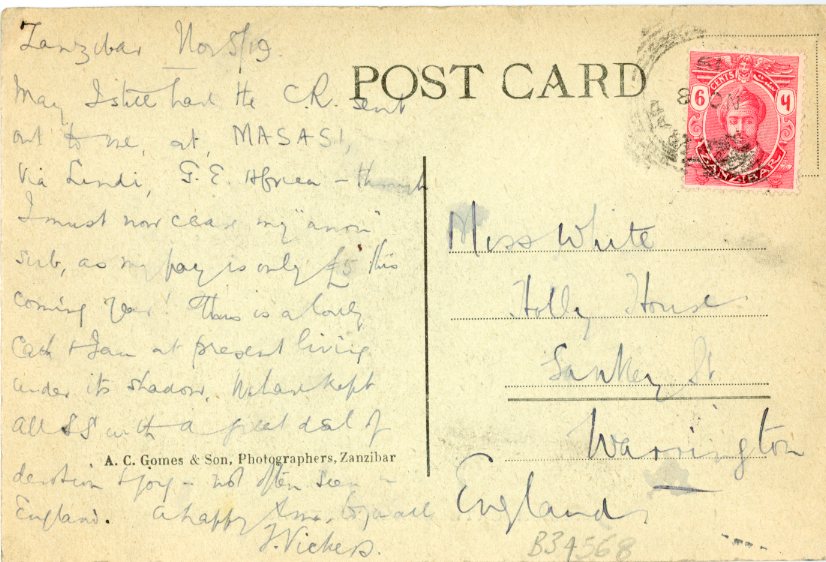 Zanzibar Nov 5/19.
May I still have the C.R. sent
out to me, at, MASASI,
via Lindi, G. E. Africa – though
I must now cease my "anon"
sub, as my pay is only £5 this
coming year! This is a lovely
Cath & I am at present living
under its shadow. We have kept
All SS with a great deal of
devotion & joy – not often seen in
England. A happy Xmas to you all
J. Vickers.
A. C. Gomes & Son, Photographers, Zanzibar
POST CARD
6 CENTS
ZANZIBAR
Miss White
Holly House
Sankey St
Warrington
England
B34568